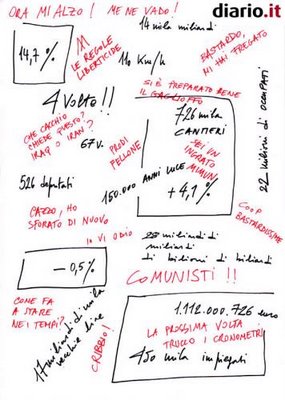 ORA MI ALZO! ME NE VADO!
diario.it
14 mila miliardi
14,7%
11
LE REGOLE
LIBERTICIDE
110 Km/h
BASTARDO,
MI HAI FREGATO
4 VOLTO!!
SI È PREPARATO BENE
IL GAGLIOFFO
726 mila
CANTIERI
CHE CACCHIO
CHIEDE QUESTO?
IRAQ O IRAN?
67 v.
PRODI
FELLONE
SEI UN
INGRATO
MIMUN
22 milioni di OCCUPATI
526 deputati
150.000 ANNI LUCE
+4,1%
CAZZO, HO
SFORATO DI NUOVO
IO VI ODIO
COOP
BASTARDISSIME
miliardi di
miliardi
di bilioni di biliardi
-0,5%
COMUNISTI!!
COME FA
A STARE
NEI TEMPI?
17 miliardi di mila
vecchie lire
CRIBBIO!
1.112.000.726 euro
LA PROSSIMA VOLTA
TRUCCO I CRONOMETRI
450 mila impiegati